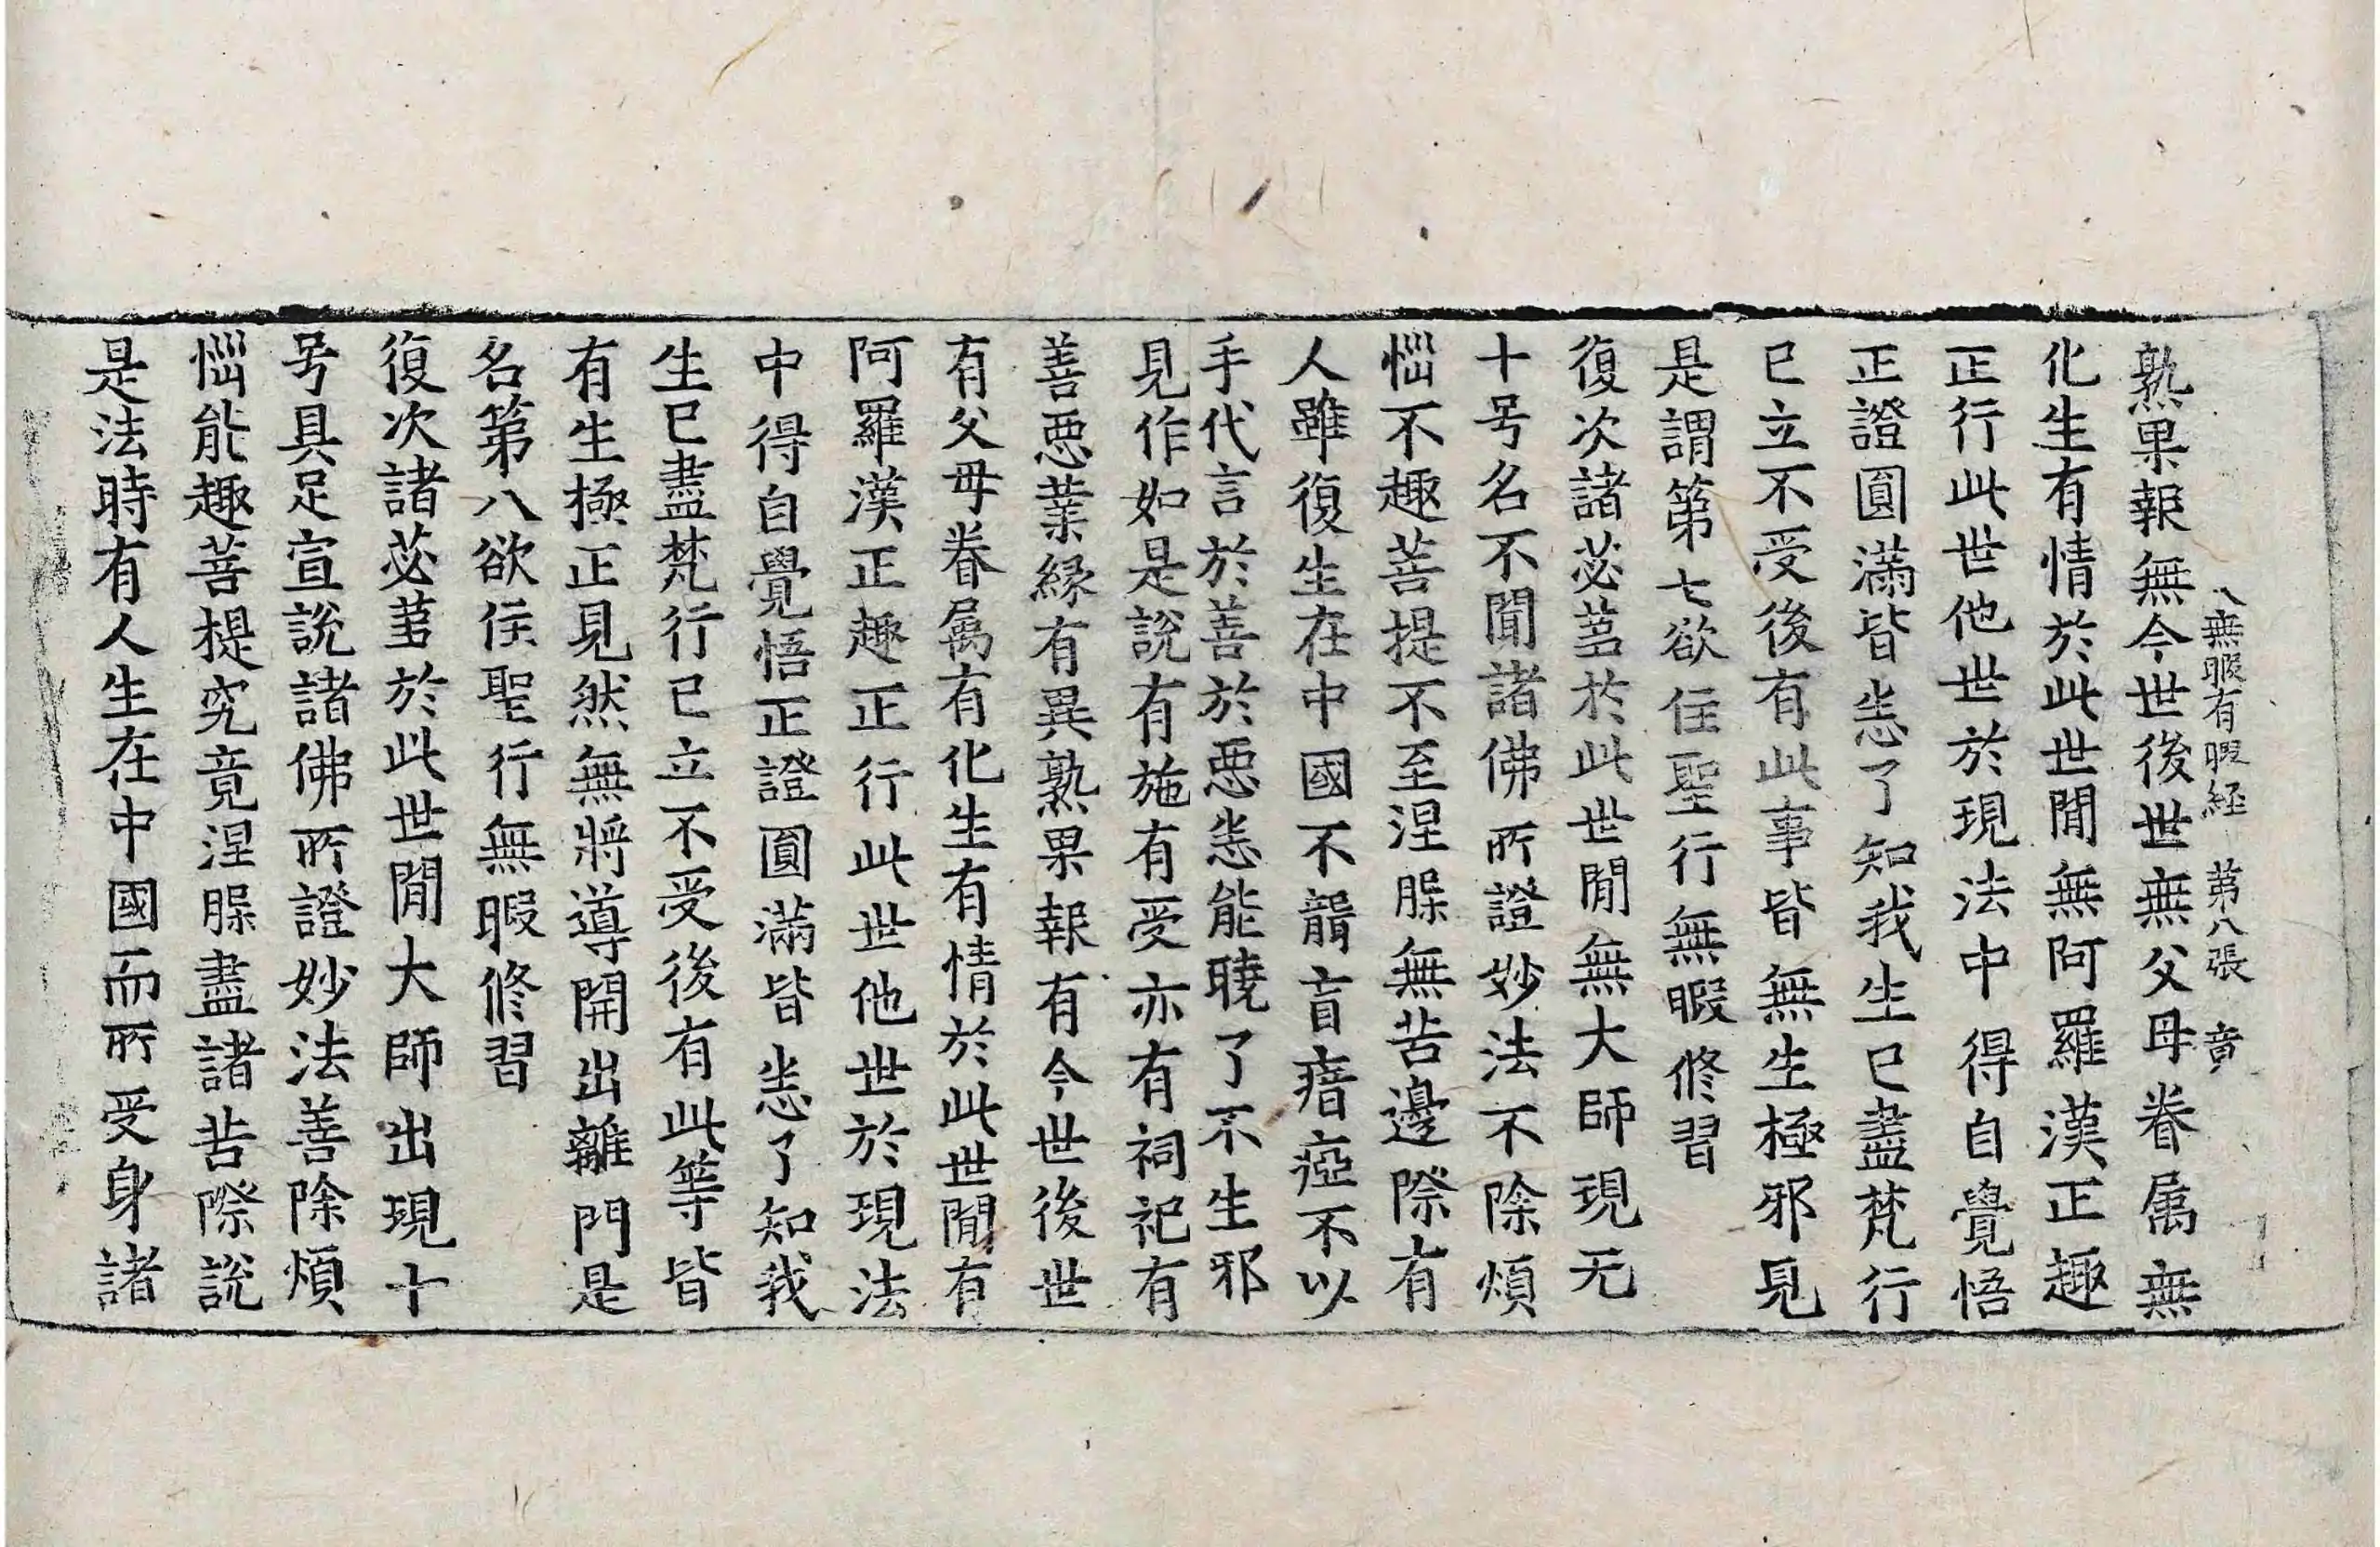 八無暇有暇経 第八張 竟
熟果報無今世後世無父母眷属無
化生有情於此世間無阿羅漢正趣
正行此世他世於現法中得自覺悟
正證圓滿皆悉了知我生已盡梵行
已立不受後有此事皆無生極邪見
是謂第七欲住聖行無暇修習
復次諸苾芻於此世間無大師現无
十号名不聞諸佛所證妙法不除煩
惱不趣菩提不至涅槃無苦邊際有
人雖復生在中國不聾盲瘖瘂不以
手代言於善於惡悉能曉了不生邪
見作如是說有施有受亦有祠祀有
善惡業緣有異熟果報有今世後世
有父母眷属有化生有情於此世間有
阿羅漢正趣正行此世他世於現法
中得自覺悟正證圓滿皆悉了知我
生已盡梵行已立不受後有此等皆
有生極正見然無將導開出離門是
名第八欲住聖行無暇修習
復次諸苾芻於此世間大師出現十
号具足宣說諸佛所證妙法善除煩
惱能趣菩提究竟涅槃盡諸苦際說
是法時有人生在中國而所受身諸